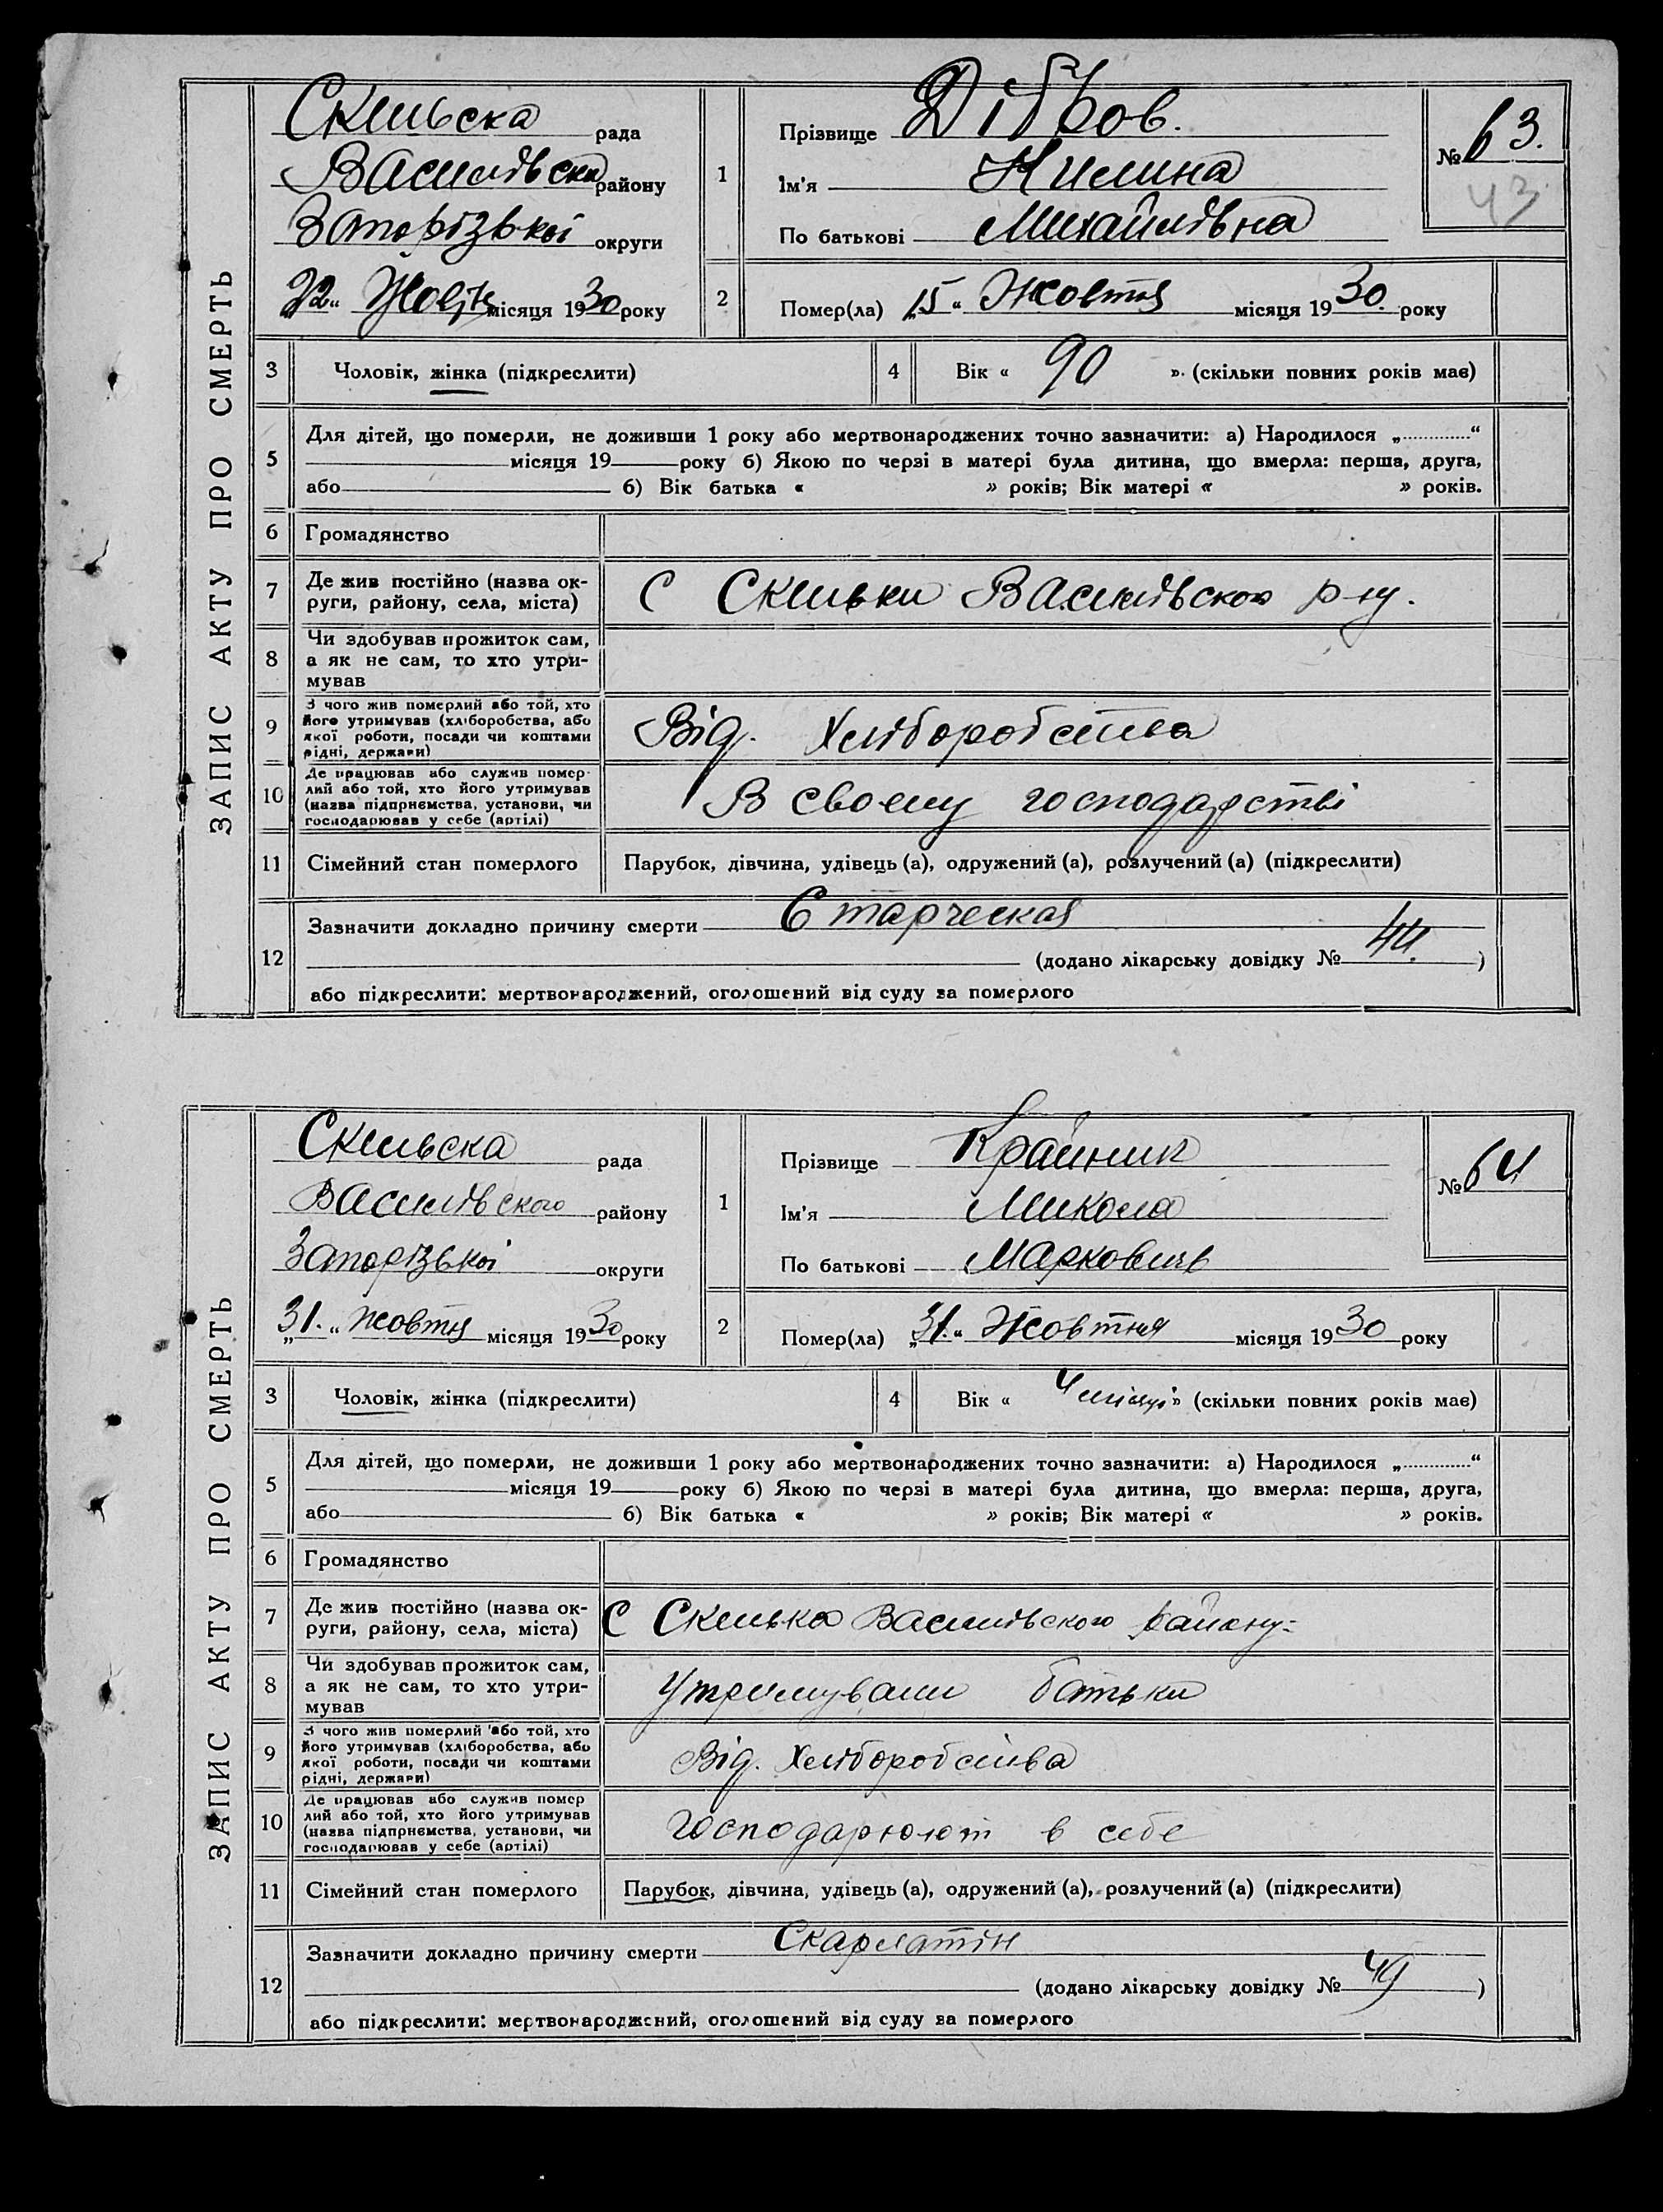 ЗАПИС АКТУ ПРО СМЕРТЬ
Скельска рада
Василівска району
Запорізької округи
„22“ Жовтн місяця 1930 року
1
Прізвище Дібров.
Ім'я Килина
По батькові Михайлівна
№ 63.
43
2
Помер(ла) „15“ Жовтня місяця 1930. року
3 Чоловік, жінка (підкреслити)
4 Вік « 90 » (скільки повних років має)
5 Для дітей, що померли, не доживши 1 року або мертвонароджених точно зазначити: а) Народилося „............“
місяця 19 року б) Якою по черзі в матері була дитина, що вмерла: перша, друга,
або б) Вік батька « » років; Вік матері « » років.
6 Громадянство
7 Де жив постійно (назва ок-
руги, району, села, міста)
С Скельки Василівского р-ну.
8 Чи здобував прожиток сам,
а як не сам, то хто утри-
мував
9 З чого жив померлий або той, хто
його утримував (хліборобства, або
якої роботи, посади чи коштами
рідні, держави)
Від. Хліборобства
10 Де працював або служив помер-
лий або той, хто його утримував
(назва підприємства, установи, чи
господарював у себе (артілі)
В своему господарстві
11 Сімейний стан померлого
Парубок, дівчина, удівець (а), одружений (а), розлучений (а) (підкреслити)
12 Зазначити докладно причину смерти Старческая
(додано лікарську довідку № 44. )
або підкреслити: мертвонароджений, оголошений від суду за померлого
ЗАПИС АКТУ ПРО СМЕРТЬ
Скельска рада
Василівского району
Запорізької округи
„31.“ Жовтня місяця 1930 року
1
Прізвище Крайник
Ім'я Микола
По батькові Маркович
№ 64
2
Помер(ла) „31.“ Жовтня місяця 1930 року
3 Чоловік, жінка (підкреслити)
4 Вік « 4 місяці » (скільки повних років має)
5 Для дітей, що померли, не доживши 1 року або мертвонароджених точно зазначити: а) Народилося „............“
місяця 19 року б) Якою по черзі в матері була дитина, що вмерла: перша, друга,
або б) Вік батька « » років; Вік матері « » років.
6 Громадянство
7 Де жив постійно (назва ок-
руги, району, села, міста)
С Скелька Василівского району
8 Чи здобував прожиток сам,
а як не сам, то хто утри-
мував
Утримували батьки
9 З чого жив померлий або той, хто
його утримував (хліборобства, або
якої роботи, посади чи коштами
рідні, держави)
Від. Хліборобства
10 Де працював або служив помер
лий або той, хто його утримував
(назва підприємства, установи, чи
господарював у себе (артілі)
Господарюют в себе
11 Сімейний стан померлого
Парубок, дівчина, удівець (а), одружений (а), розлучений (а) (підкреслити)
12 Зазначити докладно причину смерти Скарлатін
(додано лікарську довідку № 49 )
або підкреслити: мертвонароджений, оголошений від суду за померлого